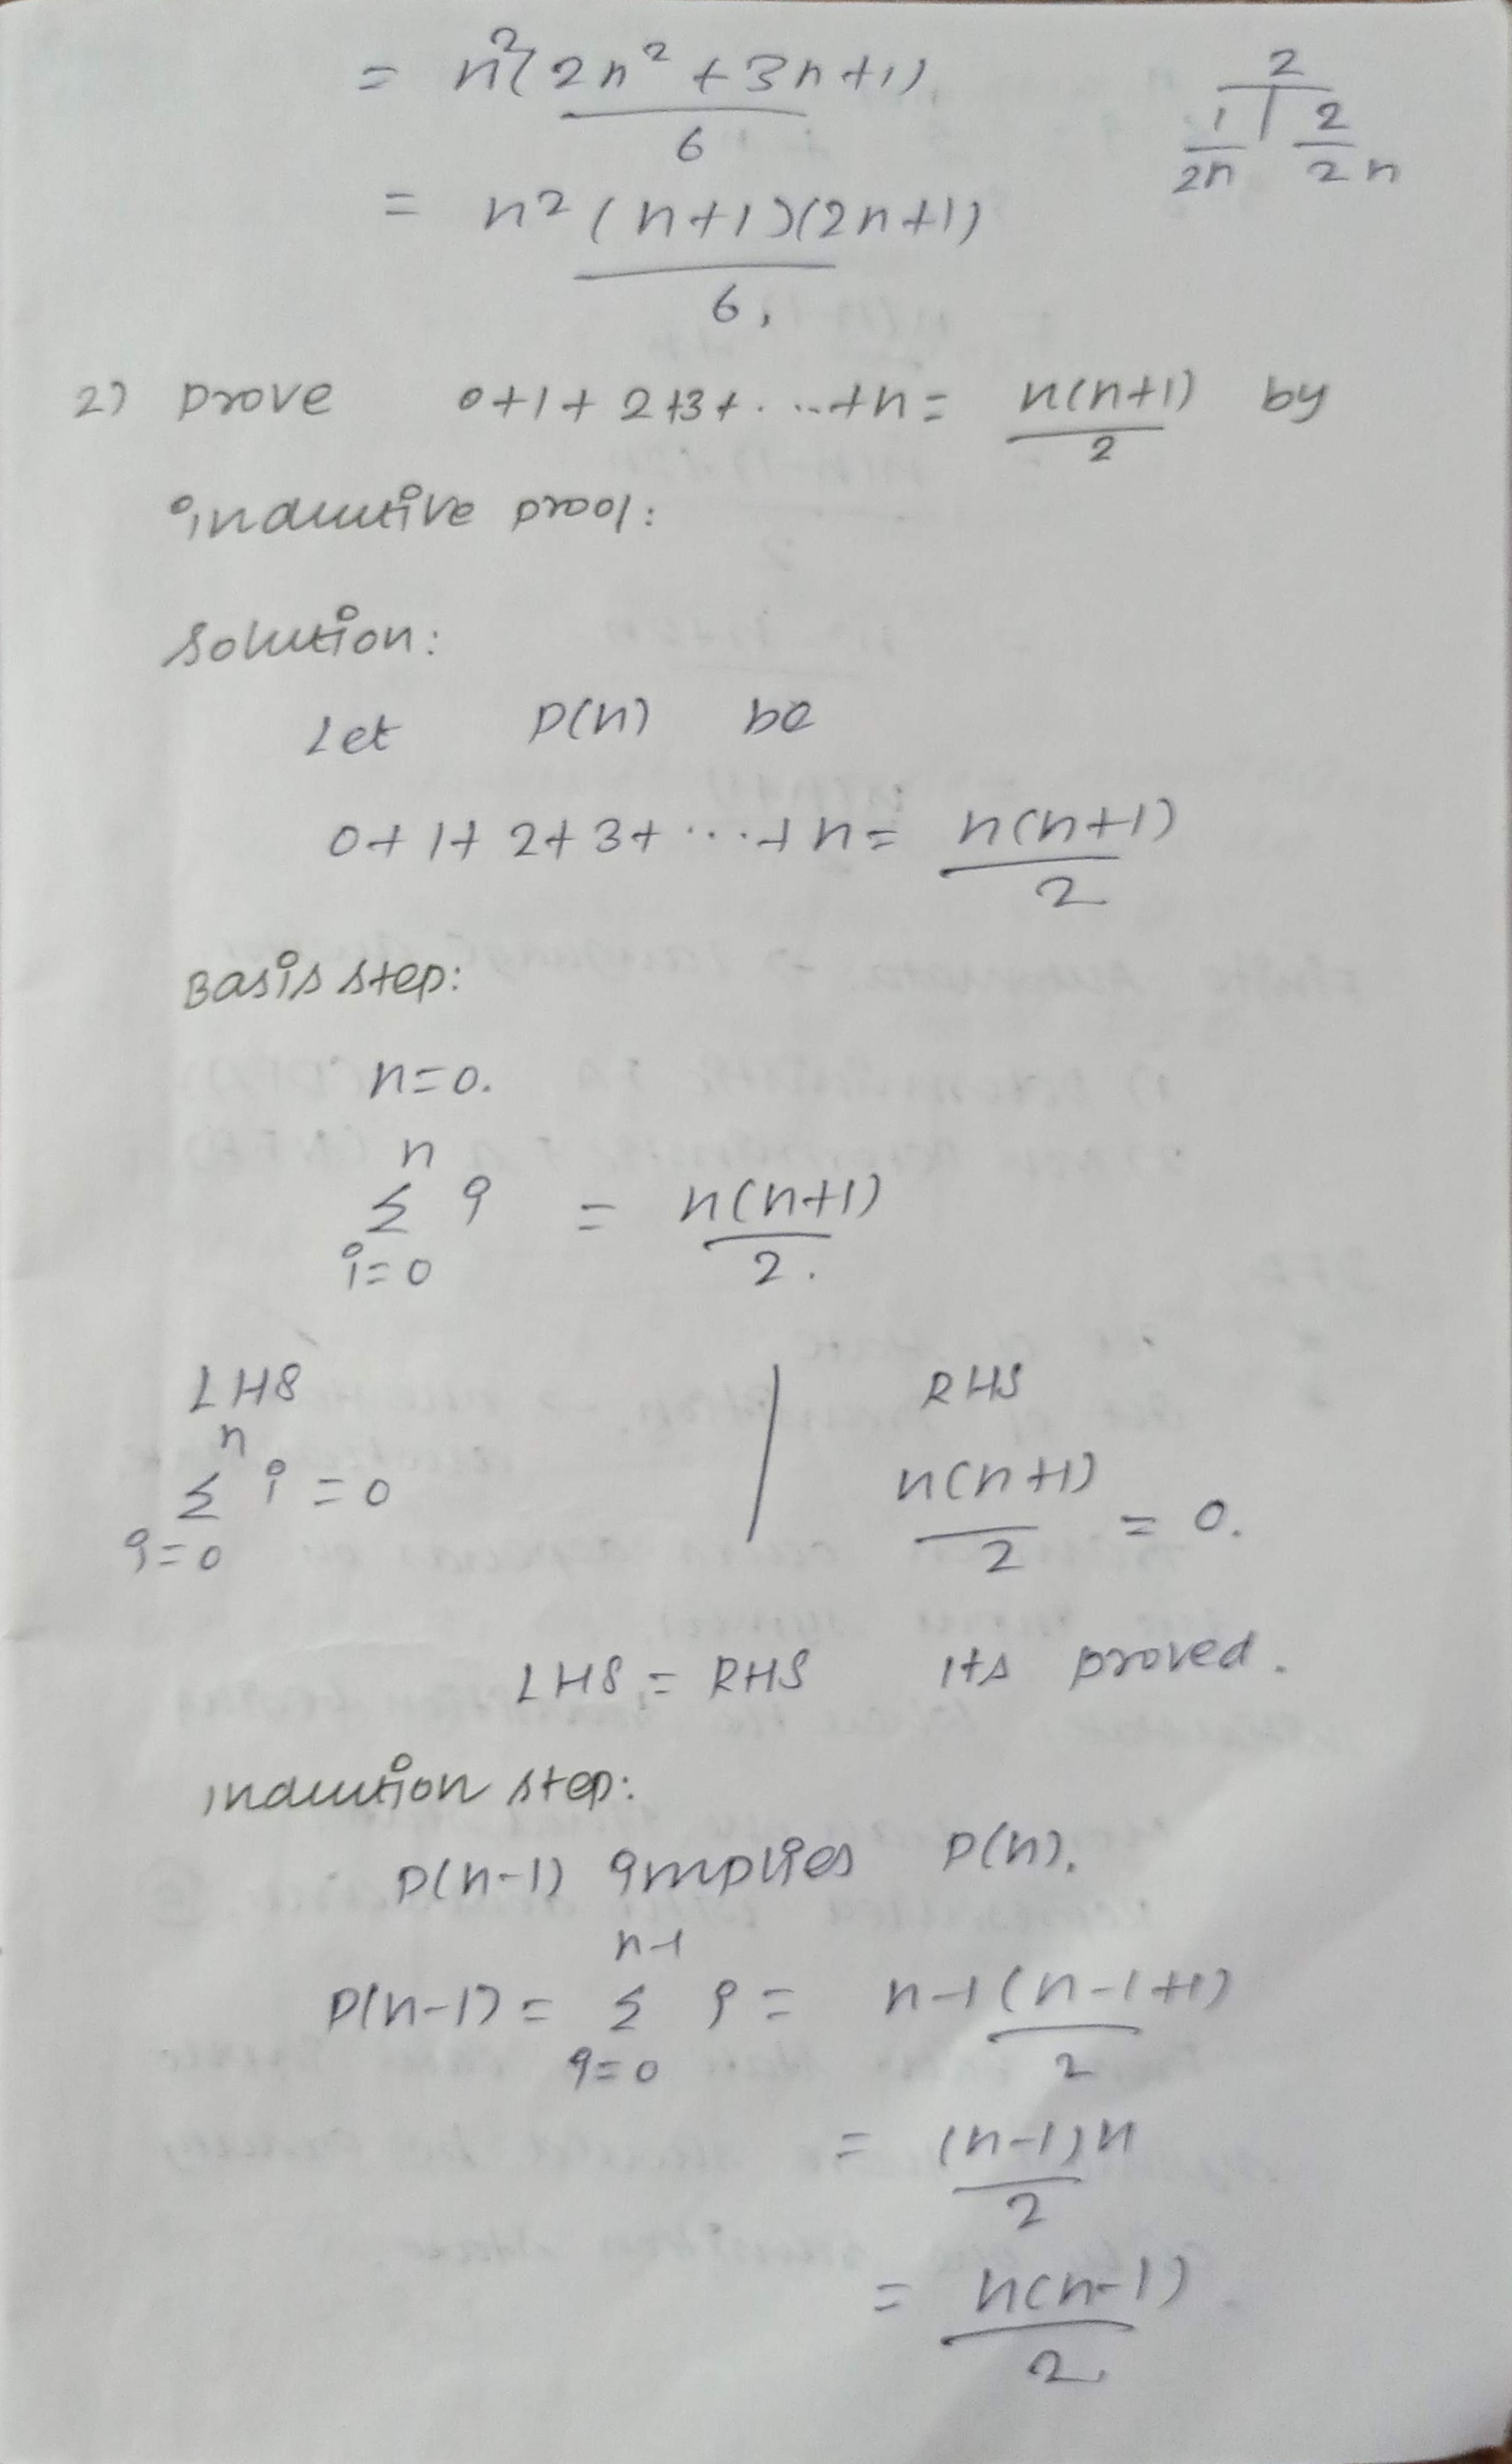 = n²(2n² + 3n + 1) / 6
2
1 | 2
2n 2n
= n² (n+1)(2n+1) / 6,
2) prove 0+1+2+3+...+n = n(n+1)/2 by
inductive proof:
Solution:
Let P(n) be
0+1+2+3+...+n = n(n+1)/2
Basis step:
n=0.
n
Σ i = n(n+1)/2.
i=0
LHS | RHS
n
Σ i = 0 | n(n+1)/2 = 0.
i=0
LHS = RHS Its proved.
induction step:
P(n-1) implies P(n).
n-1
P(n-1) = Σ i = n-1(n-1+1)/2
i=0
= (n-1)n/2
= n(n-1)/2.